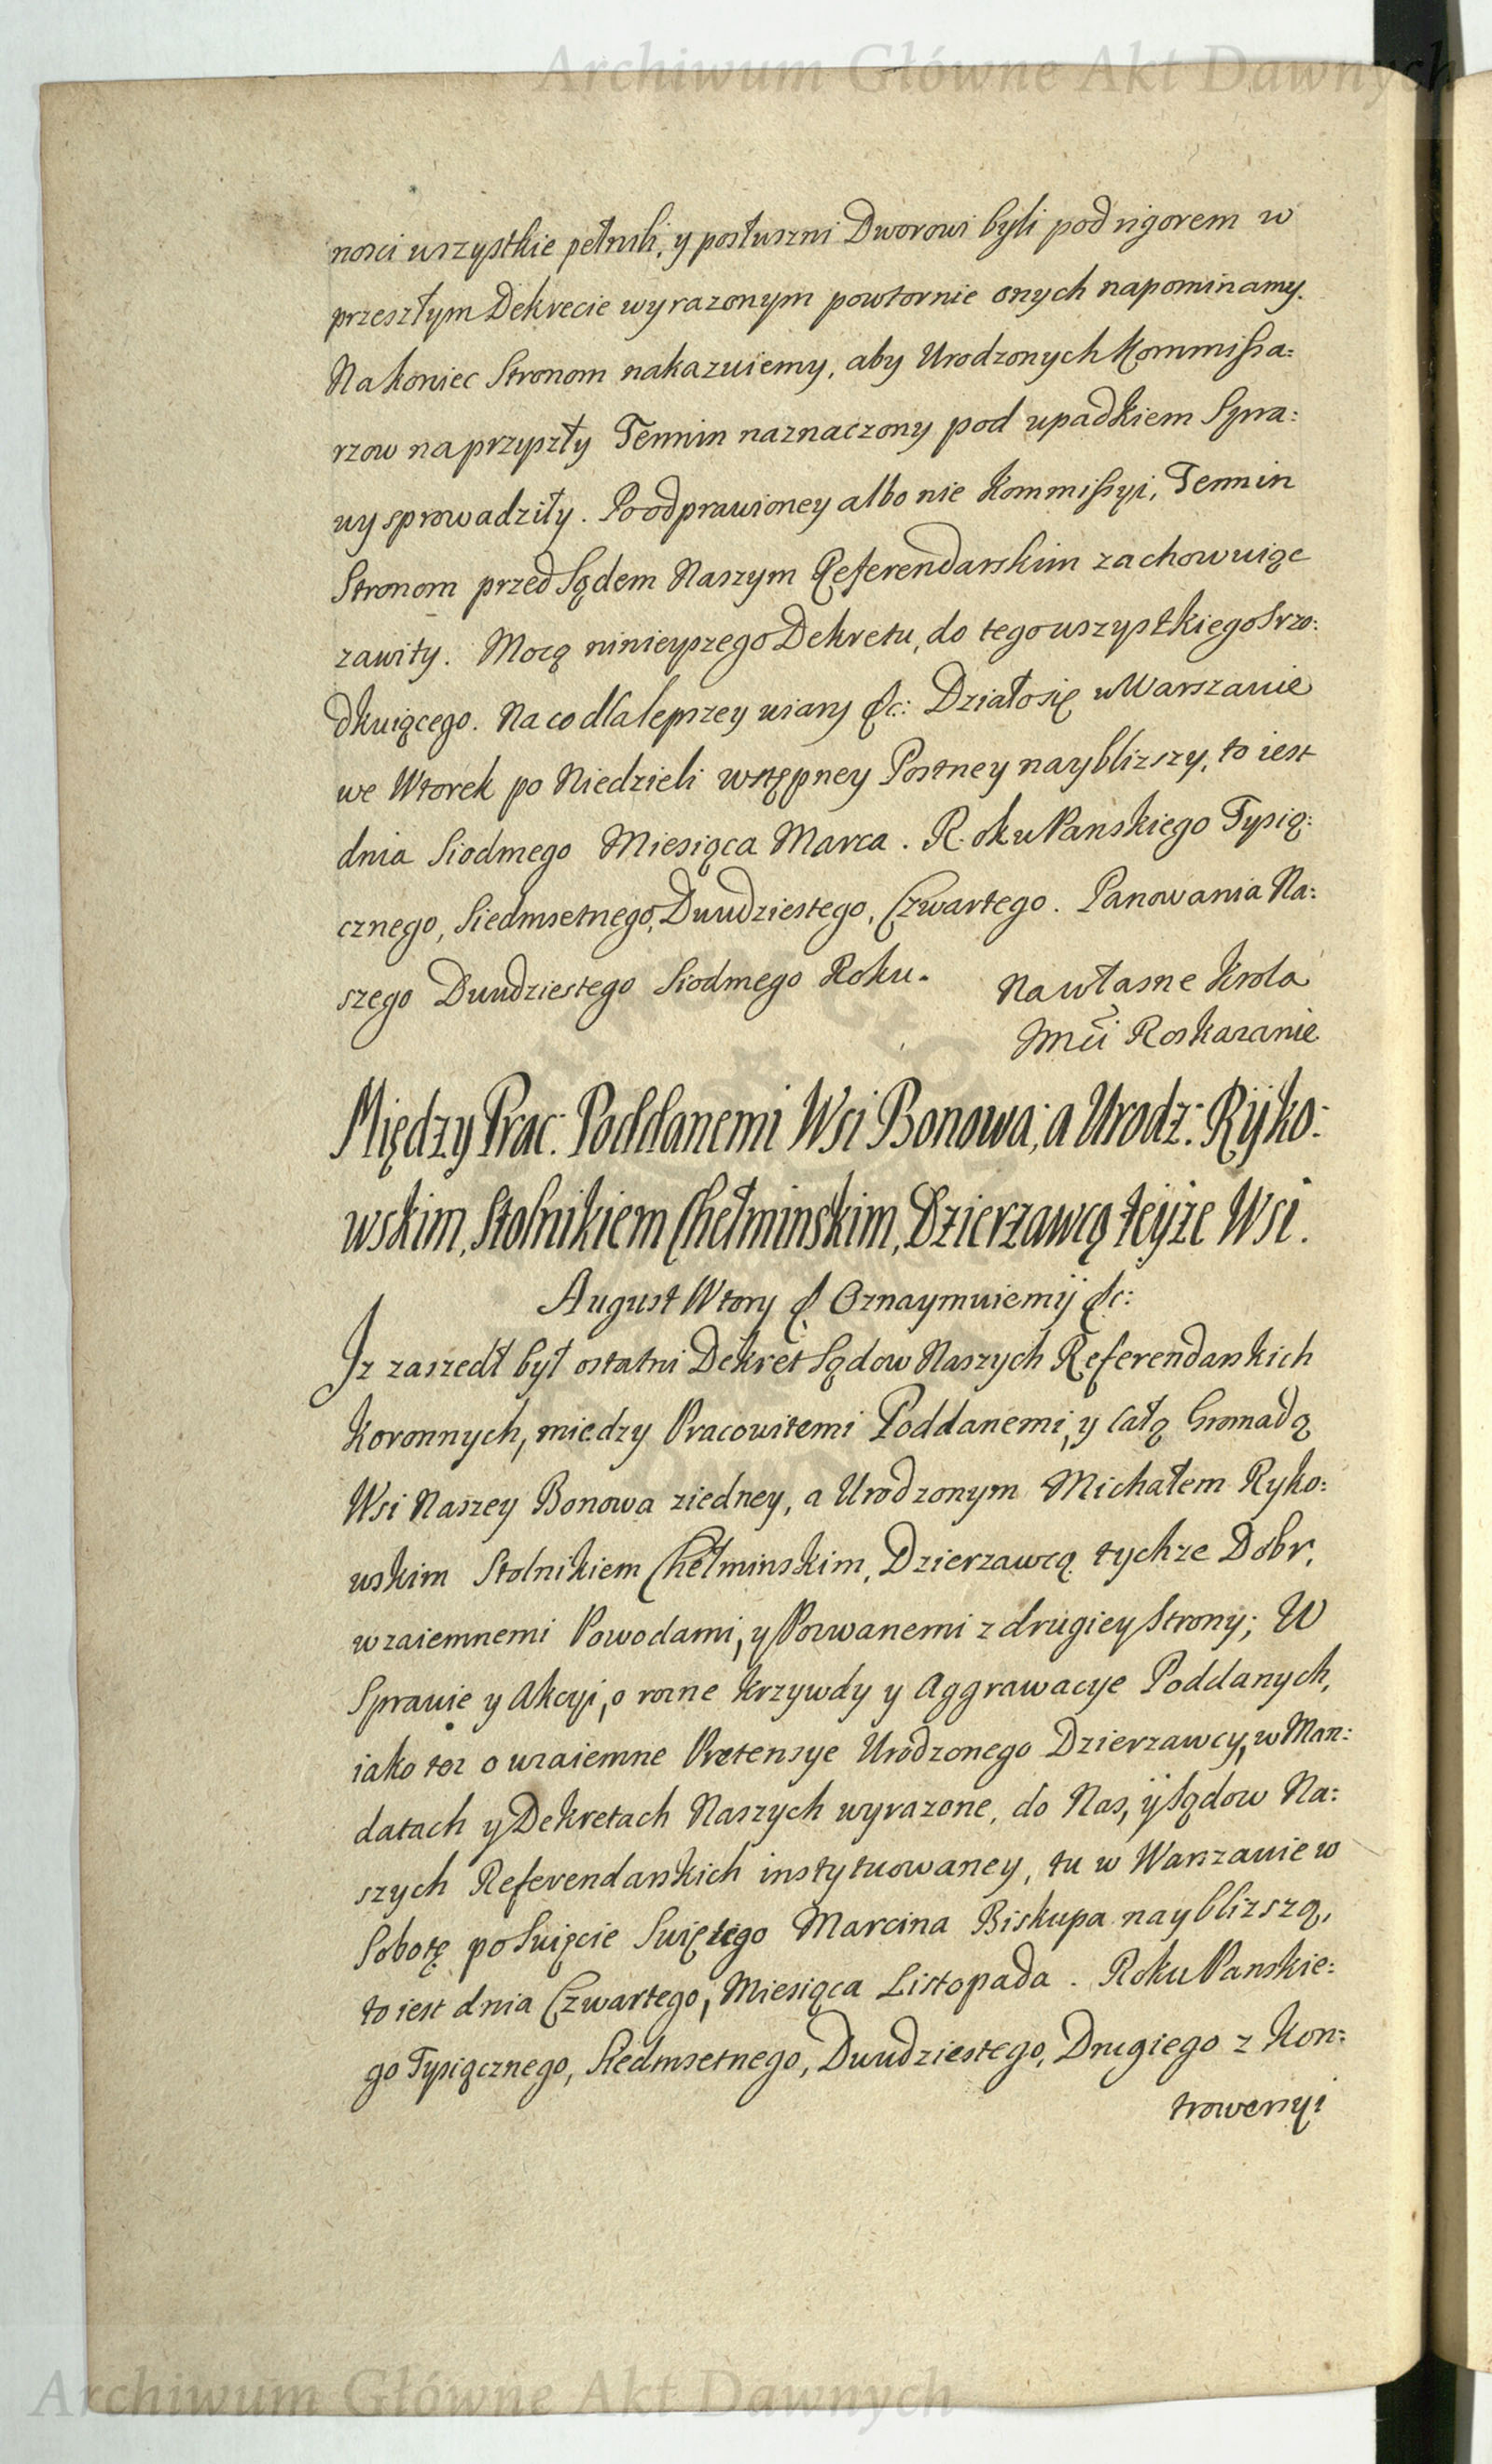 Archiwum Główne Akt Dawnych
nosci wszystkie pełnili, y posłuszni Dworowi byli pod rigorem w
przeszłym Dekrecie wyrazonym powtornie onych napominamy.
Nakoniec Stronom nakazuiemy, aby Urodzonych Kommissa=
rzow na przyszły Termin naznaczony pod upadkiem Spra=
wy sprowadziły. Po odprawioney albo nie Kommissyi, Termin
Stronom przed Sądem Naszym Referendarskim zachowuiąc
zawity. Mocą ninieyszego Dekretu, do tego wszystkiego srzo=
dkuiącego. Na co dla lepszey wiary &c: Działo się w Warszawie
we Wtorek po Niedzieli wstępney Postney nayblizszy, to iest
dnia Siodmego Miesiąca Marca. Roku Panskiego Tysią=
cznego, Siedmsetnego, Dwudziestego, Czwartego. Panowania Na=
szego Dwudziestego Siodmego Roku.
Na własne Krola
Jmći Roskazanie
Między Prac: Poddanemi Wsi Bonowa, a Urodz: Ryko=
wskim, Stolnikiem Chełminskim, Dzierzawcą teyże Wsi.
August Wtory & Oznaymuiemy &c:
Jz zaszedł był ostatni Dekret Sądow Naszych Referendarskich
Koronnych, miedzy Pracowitemi Poddanemi, y całą Gromadą
Wsi Naszey Bonowa ziedney, a Urodzonym Michałem Ryko=
wskim Stolnikiem Chełminskim, Dzierzawcą tychze Dobr,
wzaiemnemi Powodami, y Pozwanemi z drugiey Strony; W
Sprawie y Akcyi, o rozne Krzywdy y Aggrawacye Poddanych,
iako tez o wzaiemne Pretensye Urodzonego Dzierzawcy, w Man=
datach y Dekretach Naszych wyrazone, do Nas, y Sądow Na=
szych Referendarskich instytuowaney, tu w Warszawie w
Sobotę po Swięcie Swiętego Marcina Biskupa nayblizszą,
to iest dnia Czwartego, Miesiąca Listopada. Roku Panskie=
go Tysiącznego, Siedmsetnego, Dwudziestego, Drugiego z Kon=
trowersyi
Archiwum Główne Akt Dawnych